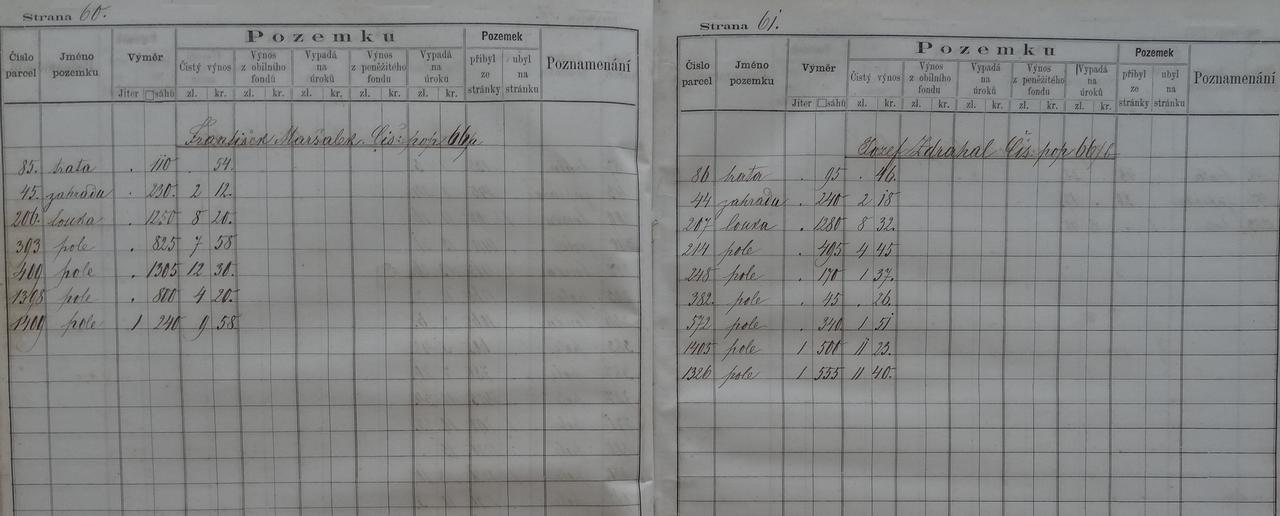 Strana 60.
Číslo parcel Jméno pozemku Výměr Pozemku Pozemek Poznamenání
Čistý výnos Výnos z obilního fondu Vypadá na úroků Výnos z peněžitého fondu Vypadá na úroku přibyl ze stránky ubyl na stránku
Jiter □sáhů zl. kr. zl. kr. zl. kr. zl. kr. zl. kr.
František Maršálek Čis: pop 66/a
85. chata . 110 . 54.
45. zahrada . 230. 2 12.
206. louka . 1250 8 20.
393 pole . 825 7 58
400 pole . 1305 12 30.
1398 pole . 800 4 20.
1409 pole 1 240 9 58
Strana 61.
Číslo parcel Jméno pozemku Výměr Pozemku Pozemek Poznamenání
Čistý výnos Výnos z obilního fondu Vypadá na úroků Výnos z peněžitého fondu Vypadá na úroku přibyl ze stránky ubyl na stránku
Jiter □sáhů zl. kr. zl. kr. zl. kr. zl. kr. zl. kr.
Jozef Zdrahal Čis: pop 66/b
86 chata . 95 . 46.
44 zahrada . 240 2 18
207 louka . 1280 8 32.
214 pole . 495 4 45
248 pole . 170 1 37.
382. pole . 45 . 26.
572 pole . 340 1 51
1405 pole 1 500 11 23.
1326 pole 1 555 11 40.